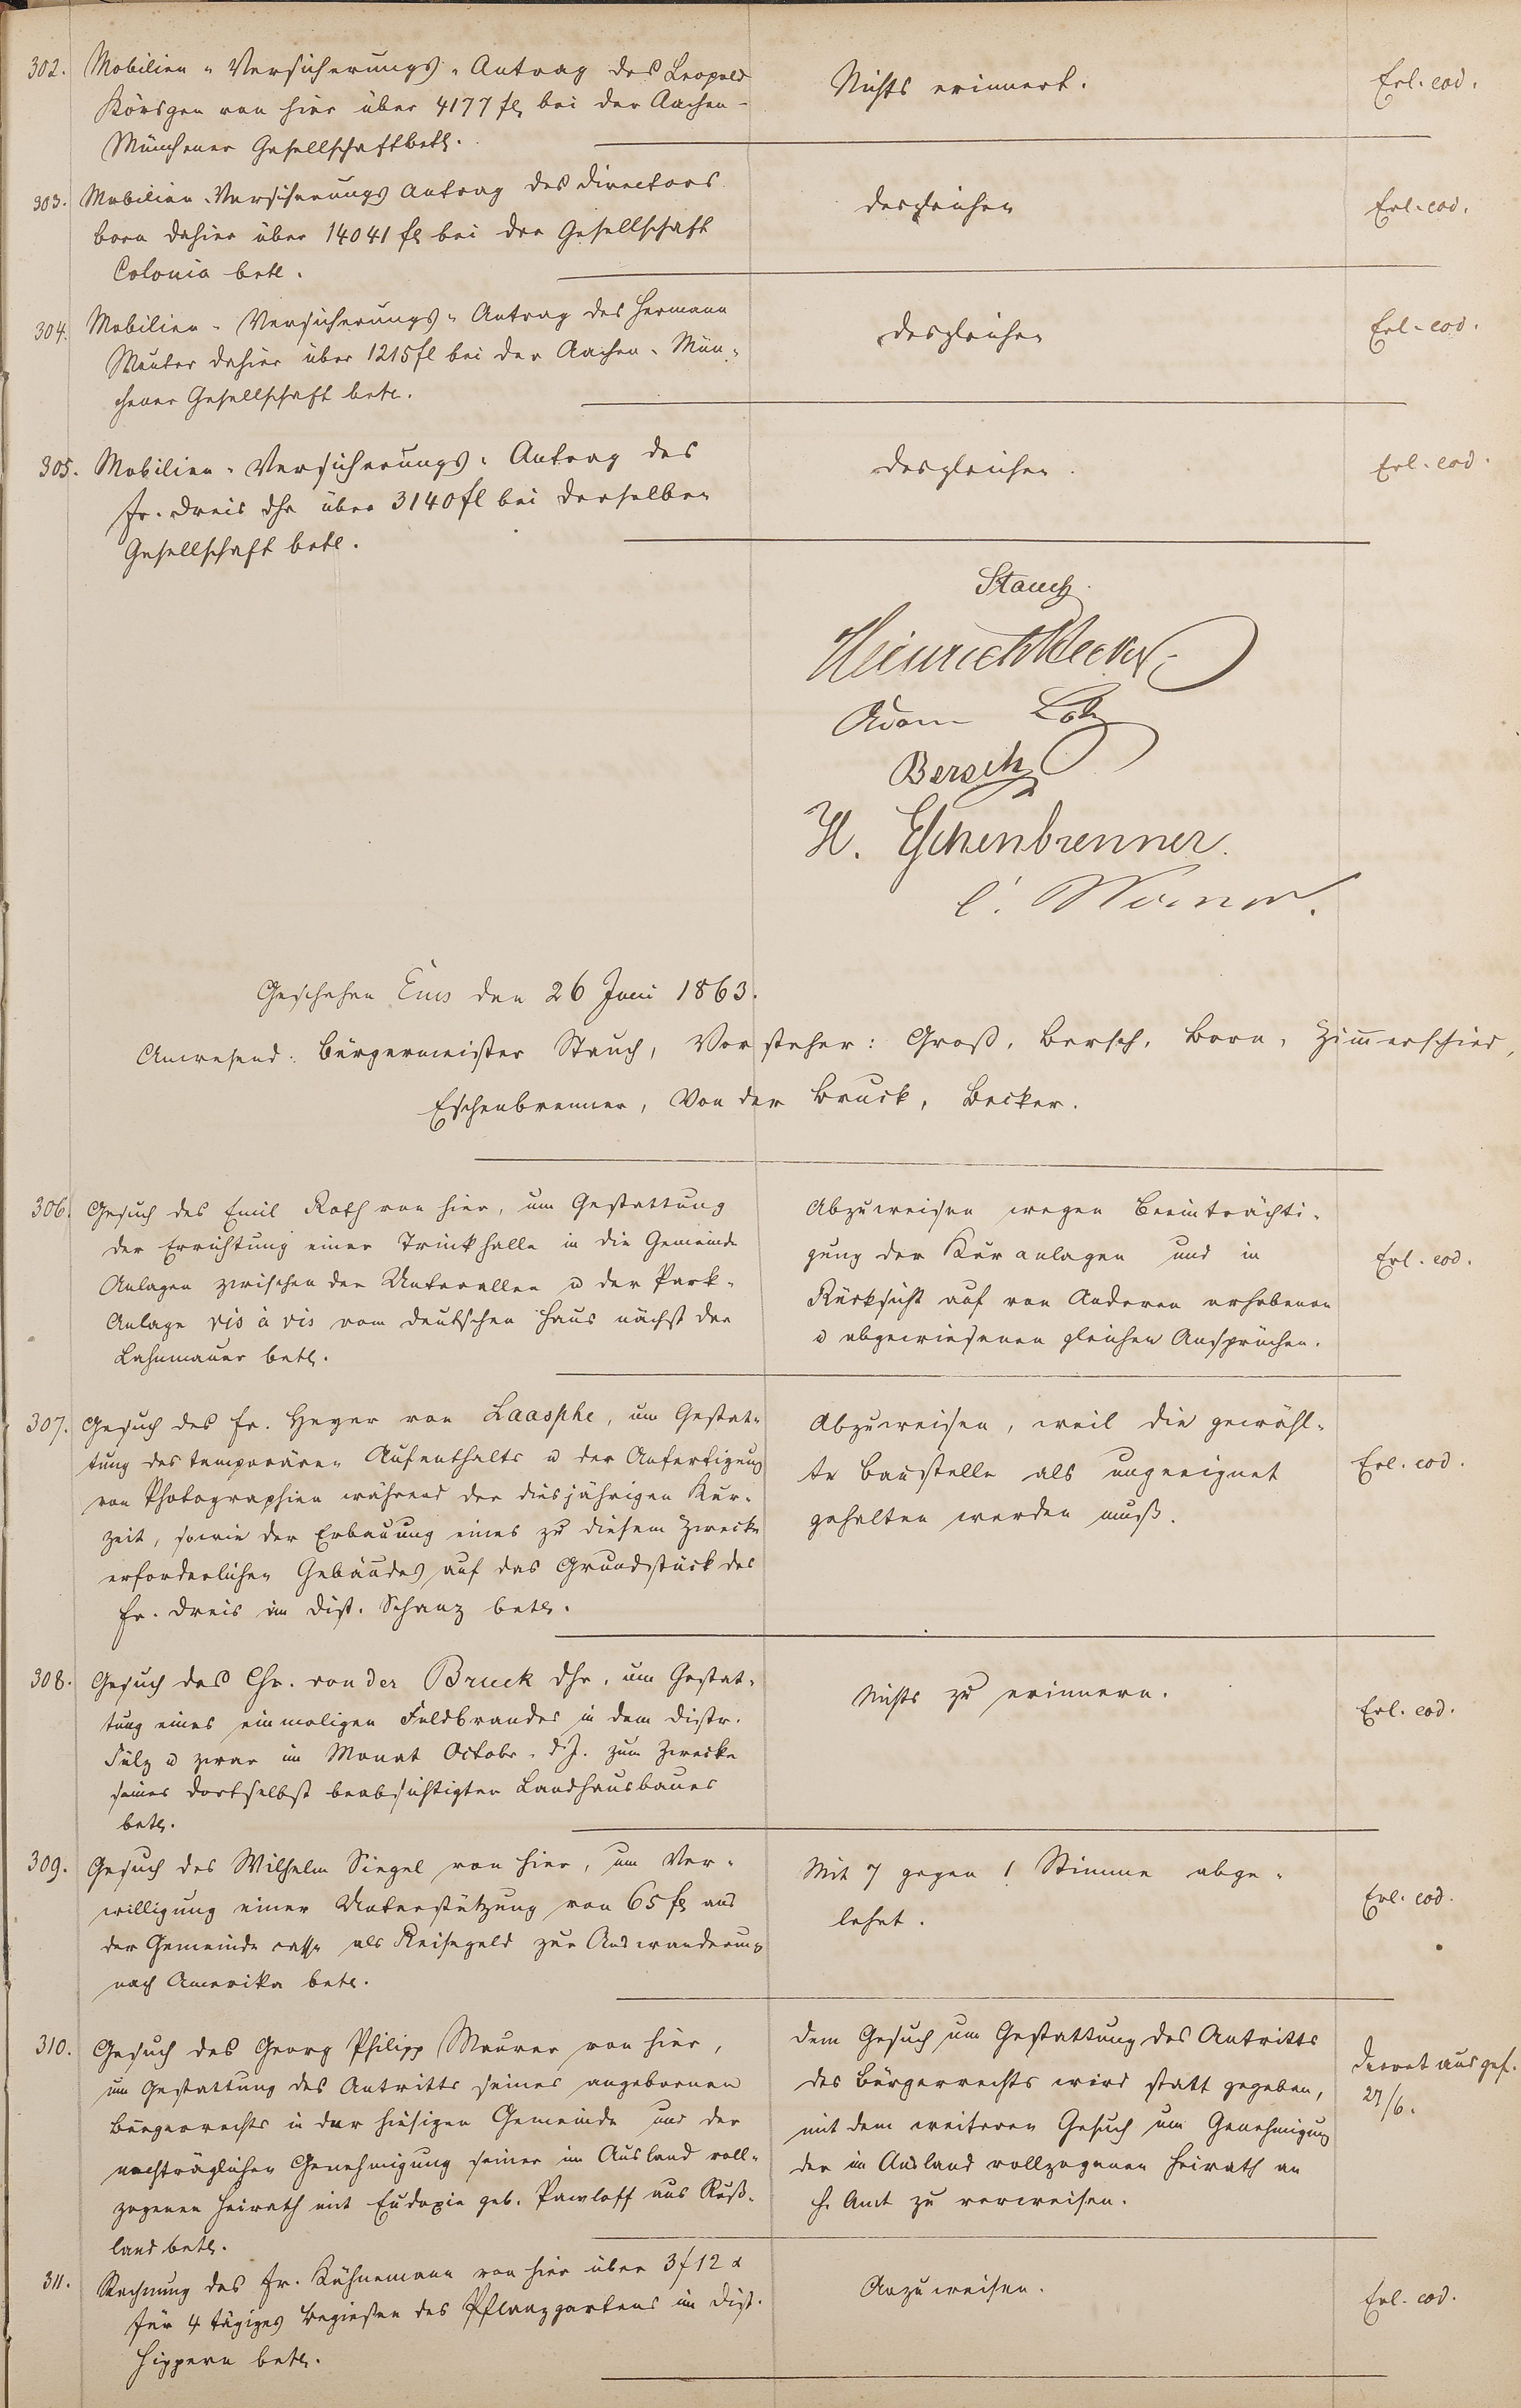 302. Mobilien-Versicherungs-Antrag des Leopold
Körsgen von hier über 4177 fl bei der Aachen-
Münchener Gesellschaft betr.
Nichts erinnert.
Erl. eod.
303. Mobilien-Versicherungs Antrag des Directors
Born dahier über 14041 fl bei der Gesellschaft
Colonia betr.
desgleichen
Erl. eod.
304. Mobilien-Versicherungs-Antrag des Hermann
dahier über 1215 fl bei der Aachen-Mün-
chener Gesellschaft betr.
desgleichen
Erl. eod.
305. Mobilien-Versicherungs-Antrag des
Fr. Dreis dhr über 3140 fl bei derselben
Gesellschaft betr.
desgleichen.
Erl. eod.
Stauch
Heinrich Becker
Adam
Bersch
H. Eschenbrenner.
Geschehen Ems den 26 Juni 1863.
Anwesend: Bürgermeister Stauch, Vorsteher: Groß, Bersch, Born, Zimmerschied,
Eschenbrenner, Von der Bruck, Becker.
306. Gesuch des Emil Roth von hier, um Gestattung
der Errichtung einer Trinkhalle in die Gemeinde
Anlagen zwischen der Unterallee u der Park-
Anlage vis à vis vom deutschen Haus nächst der
Lahnmauer betr.
Abzuweisen wegen Beeinträchti-
gung der Kuranlagen und in
Rücksicht auf von Anderen erhobenen
u abgewiesenen gleichen Ansprüchen.
Erl. eod.
307. Gesuch des Fr. Heyer von Laasphe, um Gestat-
tung des temporären Aufenthalts u der Anfertigung
von Photographien während der diesjährigen Kur-
zeit, sowie der Erbauung eines zu diesem Zwecke
erforderlichen Gebäudes auf das Grundstück des
Fr. Dreis im Dist. Schanz betr.
Abzuweisen, weil die gewähl-
te Baustelle als ungeeignet
gehalten werden muß.
Erl. eod.
308. Gesuch des Chr. von der Bruck dhr, um Gestat-
tung eines einmaligen Feldbrandes in dem Distr.
Sülz u zwar im Monat Octobr. d. J. zum Zwecke
seines dortselbst beabsichtigten Landhausbaues
betr.
Nichts zu erinnern.
Erl. eod.
309. Gesuch des Wilhelm Siegel von hier, um Ver-
willigung einer Unterstützung von 65 fl aus
der Gemeinde casse als Reisegeld zur Auswanderung
nach Amerika betr.
Mit 7 gegen 1 Stimme abge-
lehnt.
Erl. eod.
310. Gesuch des Georg Philipp Maurer von hier,
um Gestattung des Antritts seines angebornen
Bürgerrechts in der hiesigen Gemeinde und der
nachträglichen Genehmigung seiner im Ausland voll-
zogenen Heirath mit Eudoxia geb. Pawloff aus Ruß-
land betr.
Dem Gesuch um Gestattung des Antritts
des Bürgerrechts wird statt gegeben,
mit dem weiteren Gesuch um Genehmigung
der im Ausland vollzogenen Heirath an
H. Amt zu verweisen.
Decret ausgef.
27/6.
311. Rechnung des Fr. Kühnemann von hier über 3 f 12 x
für 4 tägiges Begießen des Pflanzgartens im Dist.
Hippern betr.
Anzuweisen.
Erl. eod.